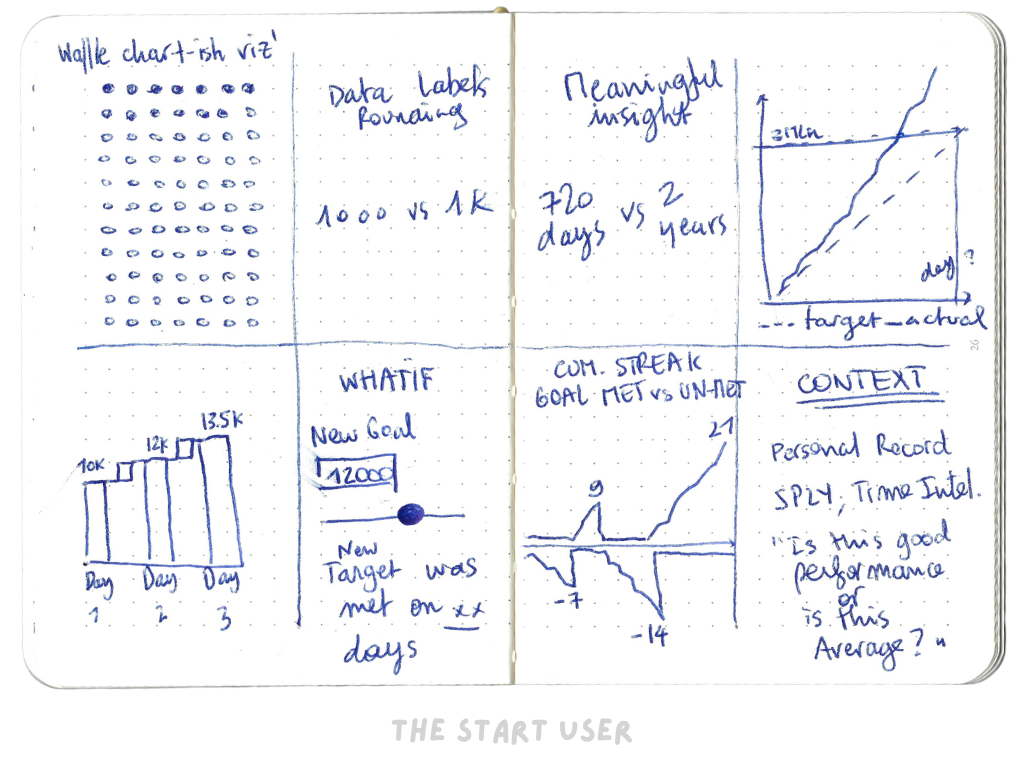 Waffle chart-ish viz'
Data Labels
Rounding
1000 vs 1K
Meaningful
insight
720
days
vs
2
years
day ?
--- target _ actual
10K
12K
13.5K
Day
1
Day
2
Day
3
WHATIF
New Goal
12000
New
Target was
met on xx
days
CUM. STREAK
GOAL MET vs UN-MET
9
21
-7
-14
CONTEXT
Personal Record
SPLY, Time Intel.
"Is this good
performance
or
is this
Average?"
26
THE START USER